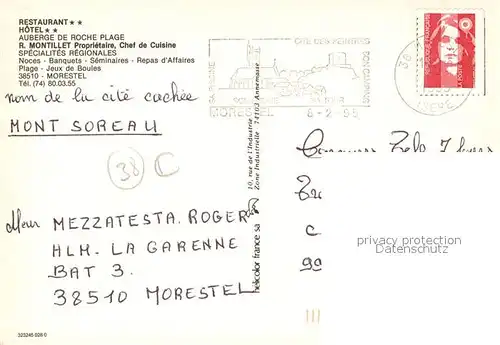 RESTAURANT ★★
HÔTEL ★★
AUBERGE DE ROCHE PLAGE
R. MONTILLET Propriétaire, Chef de Cuisine
SPÉCIALITÉS RÉGIONALES
Noces - Banquets - Séminaires - Repas d'Affaires
Plage - Jeux de Boules
38510 - MORESTEL
Tél. (74) 80.03.55
CITE DES PEINTRES
MORESTEL
8-2-95
38
ISERE
RÉPUBLIQUE FRANÇAISE
nom de la cité cachée
MONT SOREAU
38
C
10, rue de l'Industrie
Zone Industrielle - 74103 Annemasse
helicolor france sa
Meur MEZZATESTA. ROGER
HLM. LA GARENNE
BAT 3.
38510 MORESTEL
privacy protection
Datenschutz
323245 026 0